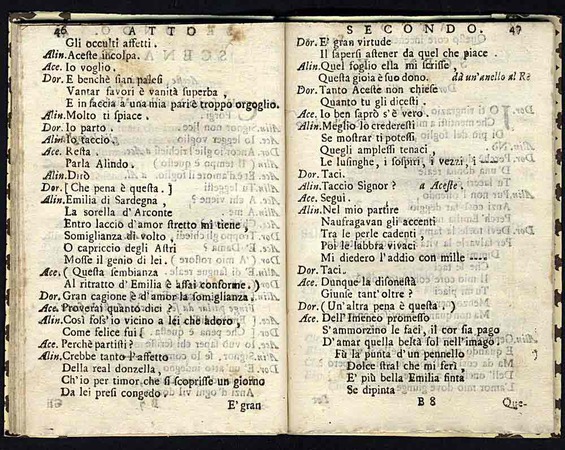 46 ATTO
Gli occulti affetti.
Alin. Aceste incolpa.
Ace. Io voglio.
Dor. E benchè sian palesi
Vantar favori è vanità superba,
E in faccia a una mia pari è troppo orgoglio.
Alin. Molto ti spiace.
Dor. Io parto.
Alin. Io taccio.
Ace. Resta.
Parla Alindo.
Alin. Dirò
Dor. [Che pena è questa.]
Alin. Emilia di Sardegna,
La sorella d'Arconte
Entro laccio d'amor stretto mi tiene,
Somiglianza di volto,
O capriccio degli Astri
Mosse il genio di lei.
Ace. (Questa sembianza
Al ritratto d'Emilia è assai conforme.)
Dor. Gran cagione è d'amor la somiglianza.
Ace. Proverai quanto dici?
Alin. Così foss'io vicino a lei che adoro,
Come felice fui
Ace. Perchè partisti?
Alin. Crebbe tanto l'affetto
Della real donzella,
Ch'io per timor che si scoprisse un giorno
Da lei presi congedo.
E' gran
SECONDO. 47
Dor. E' gran virtude
Il sapersi astener da quel che piace.
Alin. Quel foglio ella mi scrisse,
Questa gioia è suo dono. dà un'anello al Rè
Dor. Tanto Aceste non chiese
Quanto tu gli dicesti.
Ace. Io ben saprò s'è vero.
Alin. Meglio lo crederesti
Se mostrar ti potessi
Quegli amplessi tenaci,
Le lusinghe, i sospiri, i vezzi, i
Dor. Taci.
Alin. Taccio Signor? a Aceste.
Ace. Segui.
Alin. Nel mio partire
Naufragavan gli accenti
Tra le perle cadenti
Poi le labbra vivaci
Mi diedero l'addio con mille ----
Dor. Taci.
Ace. Dunque la disonestà
Giunse tant'oltre?
Dor. (Un'altra pena è questa.)
Ace. Dell'Imeneo promesso
S'ammorzino le faci, il cor sia pago
D'amar quella beltà sol nell'imago.
Fù la punta d'un pennello
Dolce stral che mi ferì,
E' più bella Emilia finta
Se dipinta
B 8 Que-